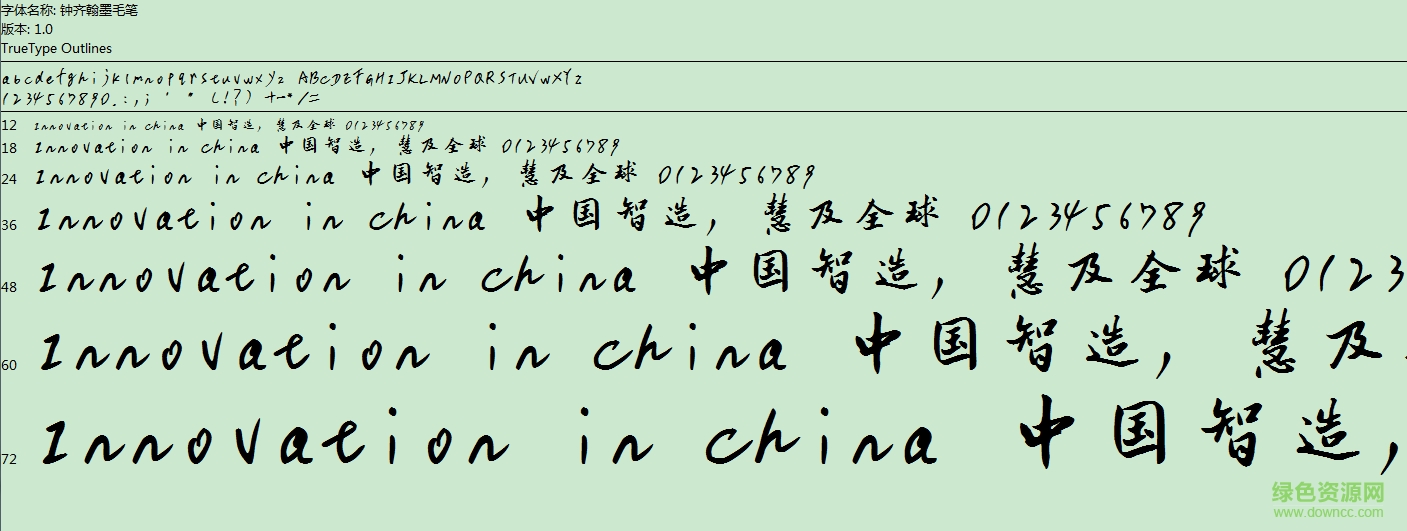 字体名称: 钟齐翰墨毛笔
版本: 1.0
TrueType Outlines
abcdefghijklmnopqrstuvwxyz ABCDEFGHIJKLMNOPQRSTUVWXYZ
1234567890.:,; ' " (!?) +-*/=
12 Innovation in china 中国智造，慧及全球 0123456789
18 Innovation in china 中国智造，慧及全球 0123456789
24 Innovation in china 中国智造，慧及全球 0123456789
36 Innovation in china 中国智造，慧及全球 0123456789
48 Innovation in china 中国智造，慧及全球 0123
60 Innovation in china 中国智造，慧及
72 Innovation in china 中国智造，
绿色资源网
www.downcc.com